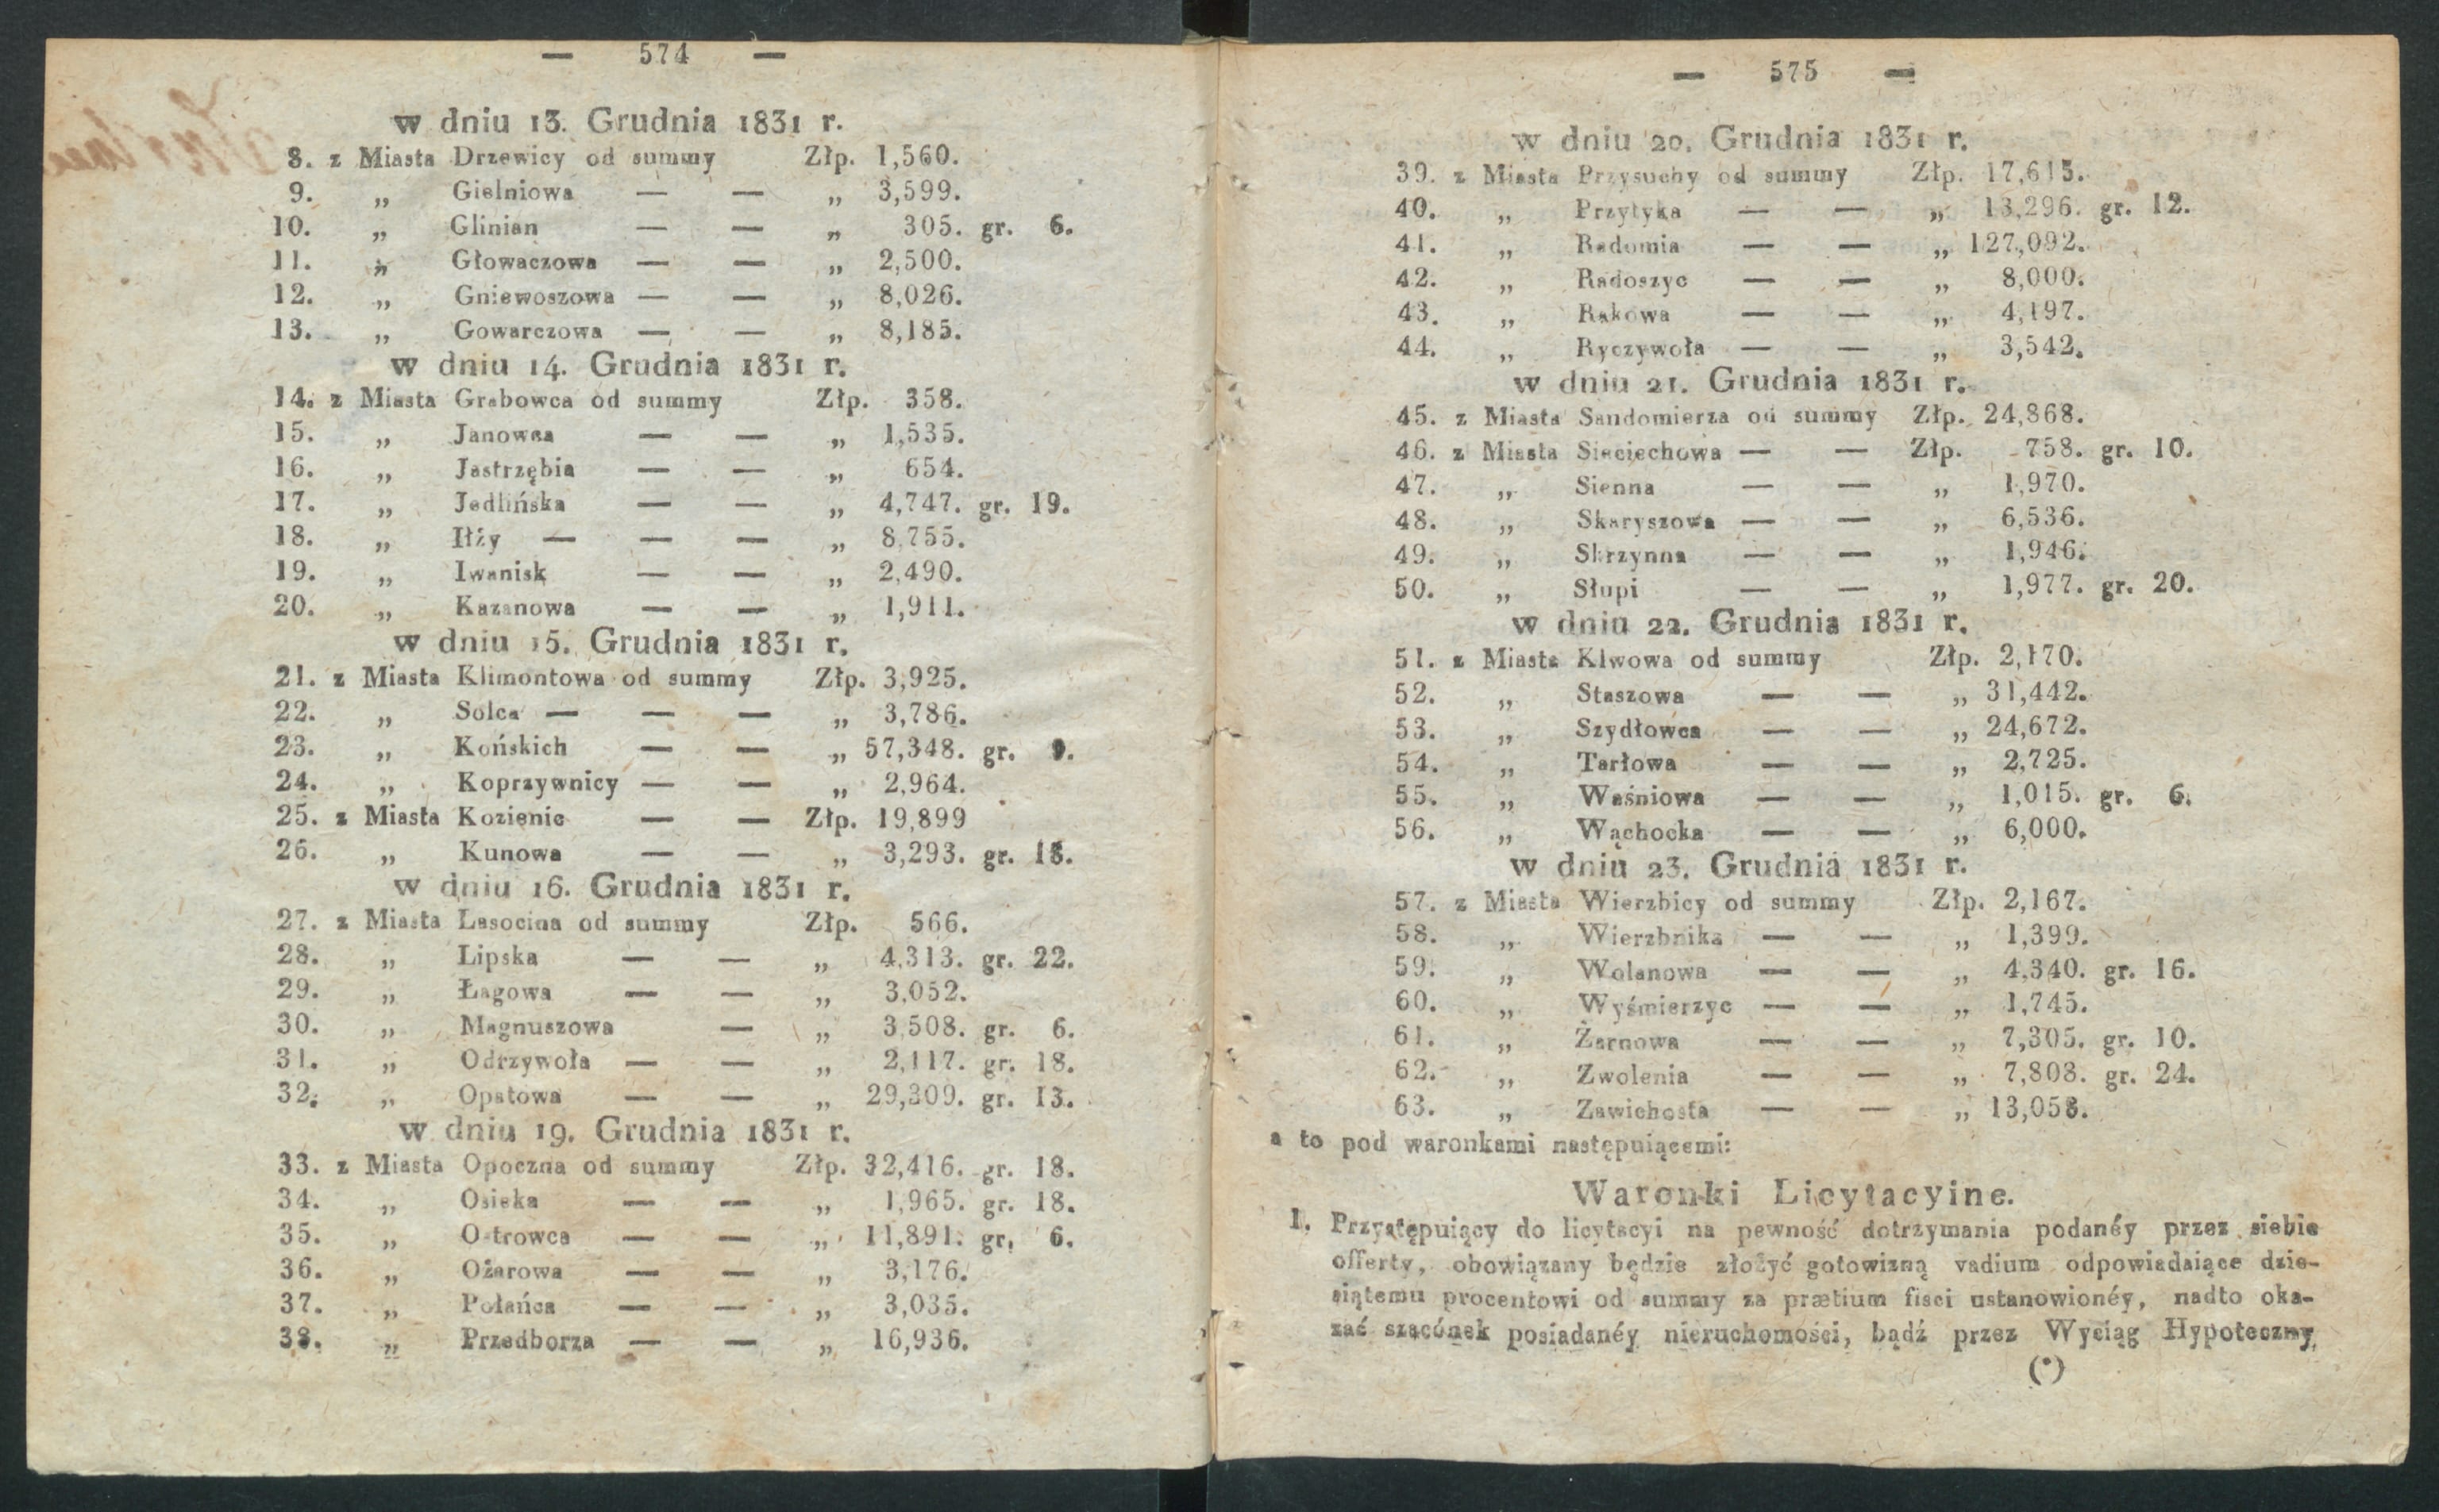 — 574 —
w dniu 13. Grudnia 1831 r.
8. z Miasta Drzewicy od summy Złp. 1,560.
9. „ Gielniowa — — „ 3,599.
10. „ Glinian — — „ 305. gr. 6.
11. „ Głowaczowa — — „ 2,500.
12. „ Gniewoszowa — — „ 8,026.
13. „ Gowarczowa — — „ 8,185.
w dniu 14. Grudnia 1831 r.
14. z Miasta Grabowca od summy Złp. 358.
15. „ Janowca — — „ 1,535.
16. „ Jastrzębia — — „ 654.
17. „ Jedlińska — — „ 4,747. gr. 19.
18. „ Iłży — — — „ 8,755.
19. „ Iwanisk — — „ 2,490.
20. „ Kazanowa — — „ 1,911.
w dniu 15. Grudnia 1831 r.
21. z Miasta Klimontowa od summy Złp. 3,925.
22. „ Solca — — — „ 3,786.
23. „ Końskich — — „ 57,348. gr. 9.
24. „ Koprzywnicy — — „ 2,964.
25. z Miasta Kozienic — — Złp. 19,899
26. „ Kunowa — — „ 3,293. gr.
w dniu 16. Grudnia 1831 r.
27. z Miasta Lasocina od summy Złp. 566.
28. „ Lipska — — „ 4,313. gr. 22.
29. „ Łagowa — — „ 3,052.
30. „ Magnuszowa — „ 3,508. gr. 6.
31. „ Odrzywoła — — „ 2,117. gr. 18.
32. „ Opatowa — — „ 29,309. gr. 13.
w dniu 19. Grudnia 1831 r.
33. z Miasta Opoczna od summy Złp. 32,416. gr. 18.
34. „ Osieka — — „ 1,965. gr. 18.
35. „ Ostrowca — — „ 11,891. gr. 6.
36. „ Ożarowa — — „ 3,176.
37. „ Połańca — — „ 3,035.
38. „ Przedborza — — „ 16,936.
— 575 —
w dniu 20. Grudnia 1831 r.
39. z Miasta Przysuchy od summy Złp. 17,615.
40. „ Przytyka — — „ 13,296. gr. 12.
41. „ Radomia — — „ 127,092.
42. „ Radoszyc — — „ 8,000.
43. „ Rakowa — — „ 4,197.
44. „ Ryczywoła — — „ 3,542.
w dniu 21. Grudnia 1831 r.
45. z Miasta Sandomierza od summy Złp. 24,868.
46. z Miasta Sieciechowa — — Złp. 758. gr. 10.
47. „ Sienna — — „ 1,970.
48. „ Skaryszowa — — „ 6,536.
49. „ Skrzynna — — „ 1,946.
50. „ Słupi — — „ 1,977. gr. 20.
w dniu 22. Grudnia 1831 r.
51. z Miasta Klwowa od summy Złp. 2,170.
52. „ Staszowa — — „ 31,442.
53. „ Szydłowca — — „ 24,672.
54. „ Tarłowa — — „ 2,725.
55. „ Waśniowa — — „ 1,015. gr. 6.
56. „ Wąchocka — — „ 6,000.
w dniu 23. Grudnia 1831 r.
57. z Miasta Wierzbicy od summy Złp. 2,167.
58. „ Wierzbnika — — „ 1,399.
59. „ Wolanowa — — „ 4,340. gr. 16.
60. „ Wyśmierzyc — — „ 1,745.
61. „ Żarnowa — — „ 7,305. gr. 10.
62. „ Zwolenia — — „ 7,808. gr. 24.
63. „ Zawichosta — — „ 13,058.
a to pod waronkami następuiącemi:
Waronki Licytacyine.
1. Przystępuiący do licytacyi na pewność dotrzymania podanéy przez siebie
offerty, obowiązany będzie złożyć gotowizną vadium odpowiadaiące dzie-
siątemu procentowi od summy za prætium fisci ustanowionéy, nadto oka-
zać szacónek posiadanéy nieruchomości, bądź przez Wyciąg Hypoteczny
(*)